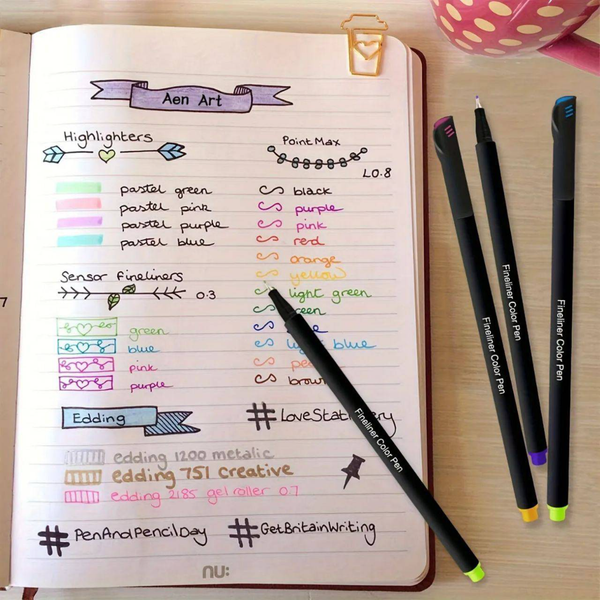 Aen Art
Highlighters
pastel green
pastel pink
pastel purple
pastel blue
Sensor Fineliners
0.3
green
blue
pink
purple
Edding
edding 1200 metalic
edding 751 creative
edding 2185 gel roller 0.7
#PenAndPencilDay
Point Max
L0.8
black
purple
pink
red
orange
yellow
light green
brown
#LoveStationery
#GetBritainWriting
nu:
7
Fineliner Color Pen
Fineliner Color Pen
Fineliner Color Pen
Fineliner Color Pen